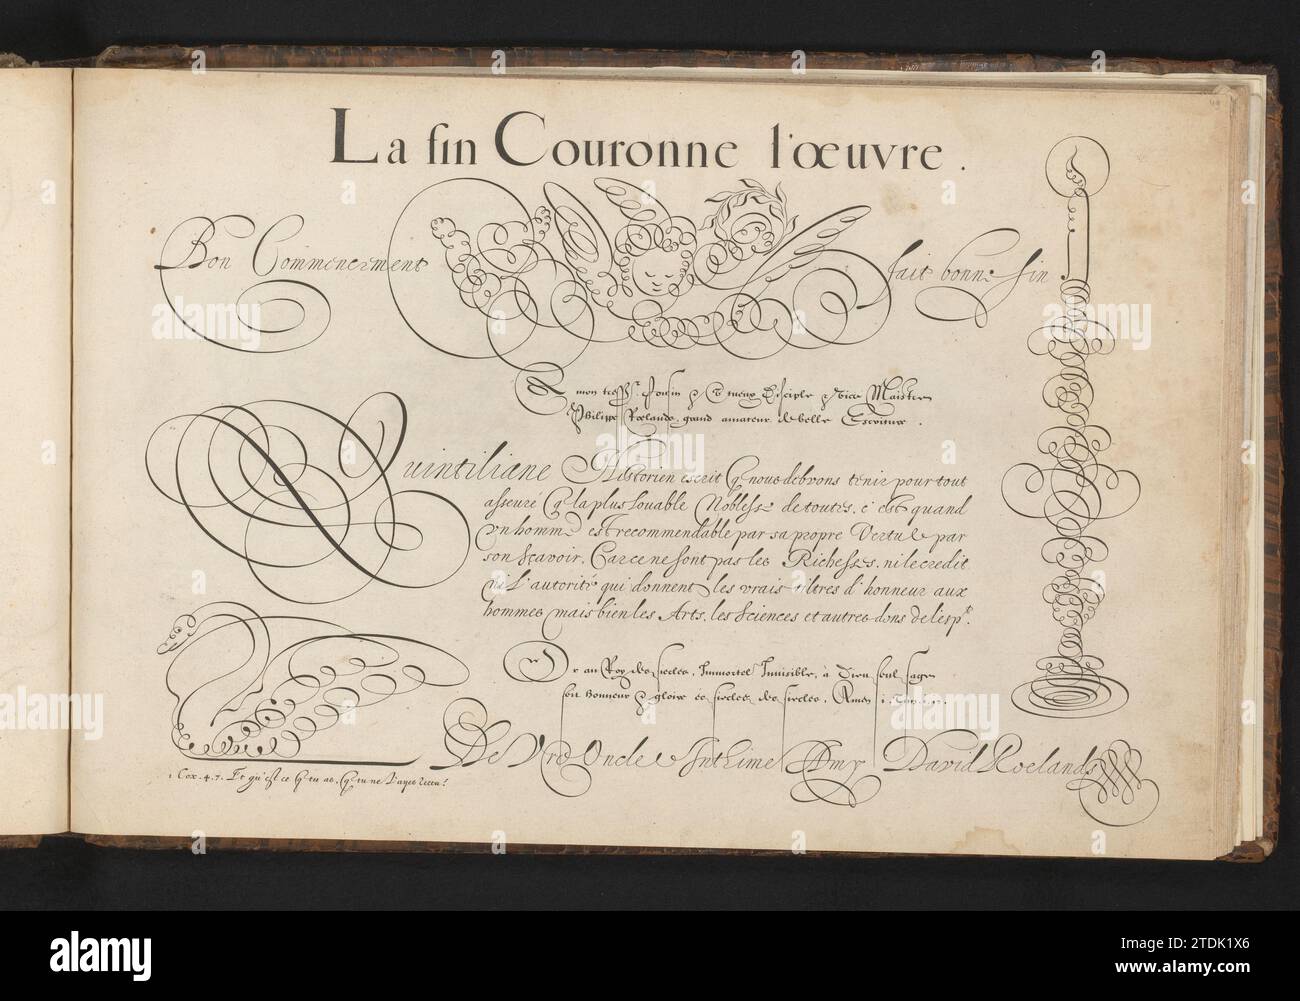 La fin Couronne l'œuvre.
Bon Commencement fait bonne fin
A mon tres Cousin & disciple & Maistre
Philippe Roelands, grand amateur de belle Escriture.
Quintiliane Historien escrit q̃ nous debvons tenir pour tout
asseuré q̃ la plus louable Noblesse de toutes, c'est quand
un homme est recommendable par sa propre Vertu & par
son sçavoir. Car ce ne sont pas les Richesses, ni le credit
ni l'autorité qui donnent les vrais tiltres d'honneur aux
hommes mais bien les Arts, les Sciences et autres dons de l'esp.t
Or au Roy des siecles, Immortel Invisible, à Dieu seul sage
soit honneur & gloire es siecles des siecles. Amen
De Vrd Oncle & Inthime Amy David Roelands
1 Cor. 4. 7. Et qu'est ce q̃ tu as, q̃ tu ne l'ayes receu?
alamy
Image ID: 2TDK1X6
www.alamy.com